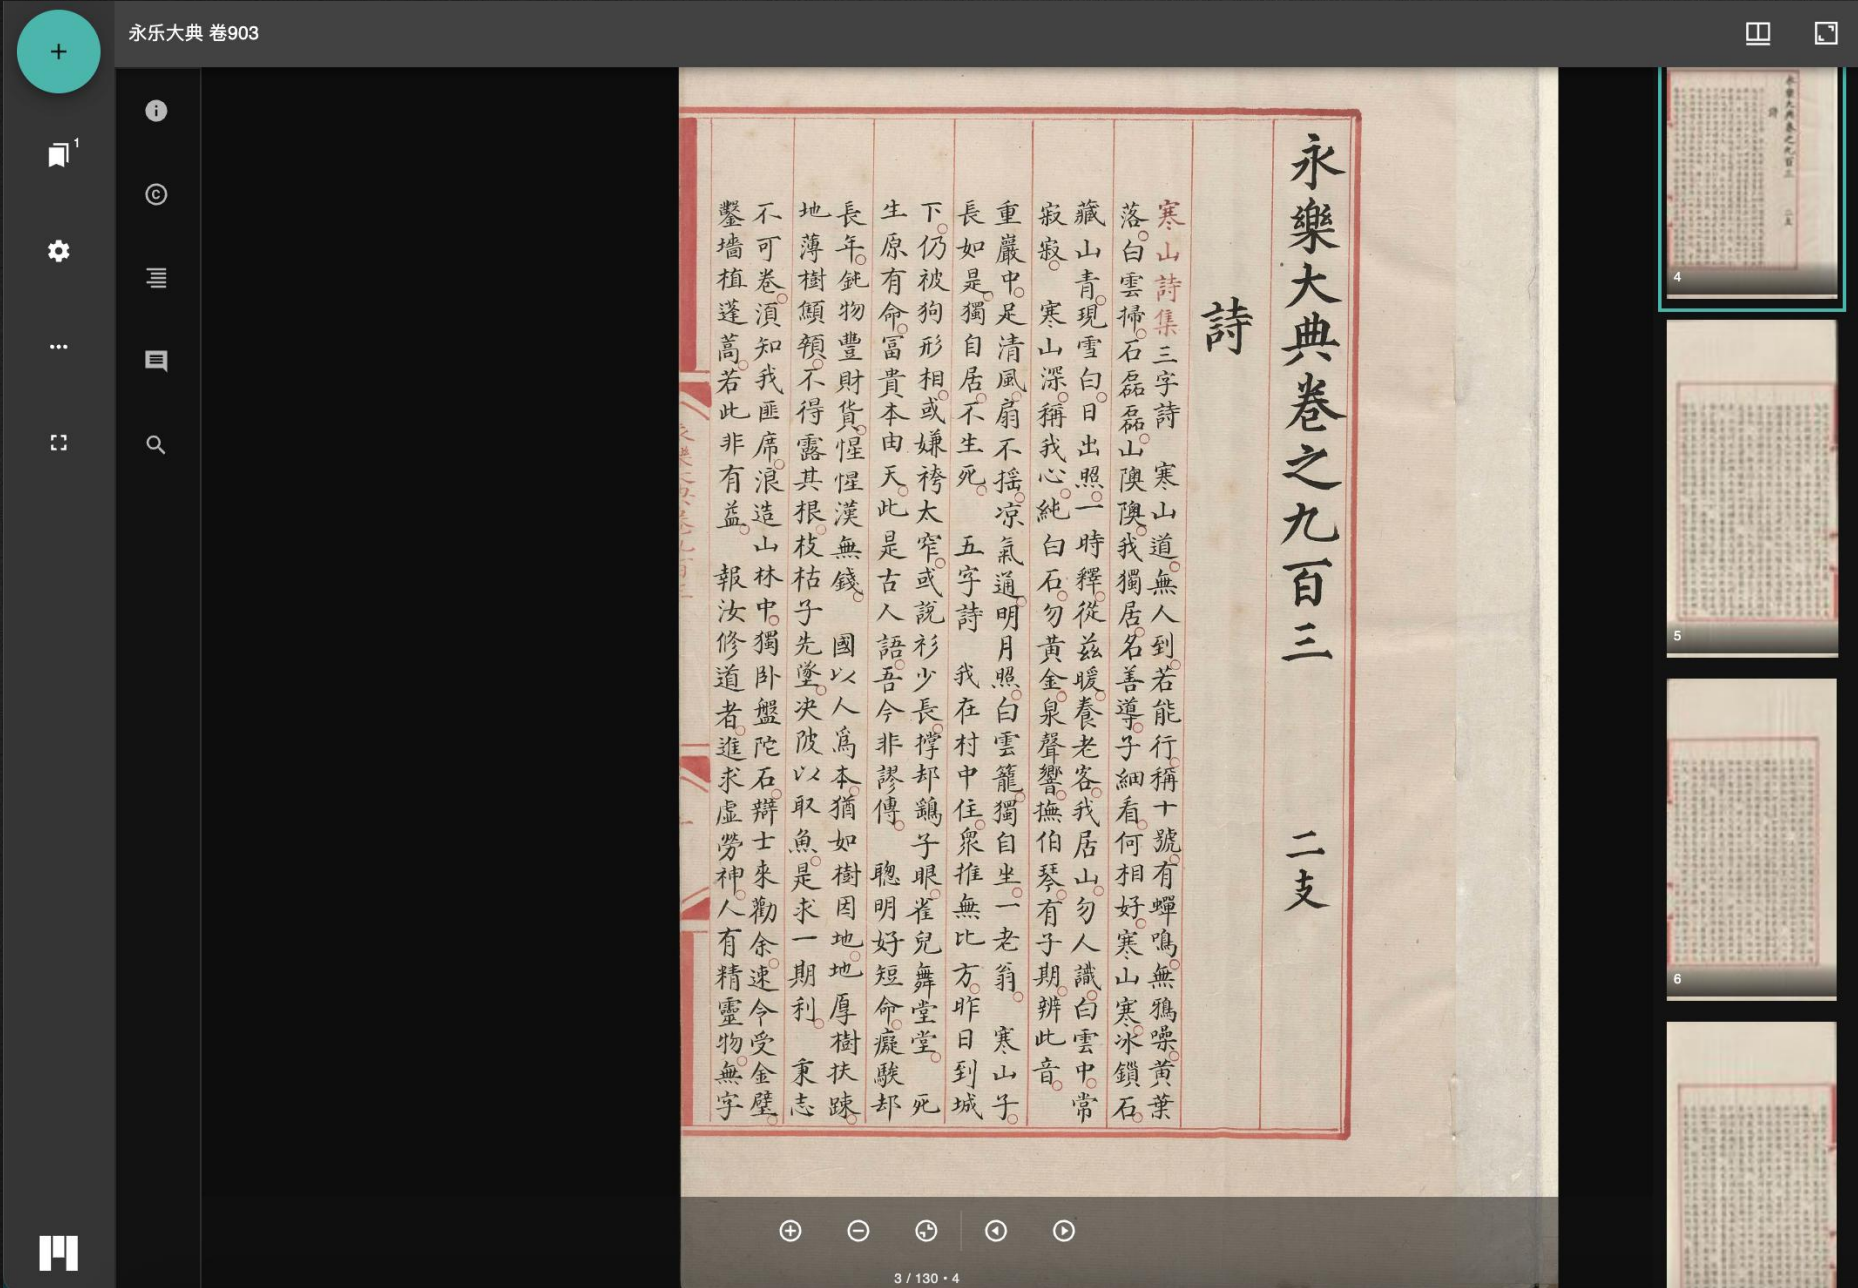 永乐大典 卷903
1
永樂大典卷之九百三 二支
詩
寒山詩集三字詩 寒山道。無人到。若能行。稱十號。有蟬鳴。無鴉噪。黃葉
落。白雲掃。石磊磊。山隩隩。我獨居。名善導。子細看。何相好。寒山寒。冰鎖石。
藏山青。現雪白。日出照。一時釋。從茲暖。養老客。我居山。勿人識。白雲中。常
寂寂。 寒山深。稱我心。純白石。勿黃金。泉聲響。撫伯琴。有子期。辨此音。
重巖中。足清風。扇不摇。凉氣通。明月照。白雲籠。獨自坐。一老翁。 寒山子。
長如是。獨自居。不生死。 五字詩 我在村中住。衆推無比方。昨日到城
下。仍被狗形相。或嫌袴太窄。或說衫少長。撑却鷂子眼。雀兒舞堂堂。 死
生原有命。冨貴本由天。此是古人語。吾今非謬傳。 聰明好短命。癡騃却
長年。鈍物豐財貨。惺惺漢無錢。 國以人爲本。猶如樹因地。地厚樹扶踈。
地薄樹顦顇。不得露其根。枝枯子先墜。决陂以取魚。是求一期利。 秉志
不可卷。湏知我匪席。浪造山林中。獨卧盤陀石。辯士來勸余。速令受金璧。
鑿墻植蓬蒿。若此非有益。 報汝修道者。進求虛勞神。人有精靈物。無字
4
5
6
3 / 130 • 4